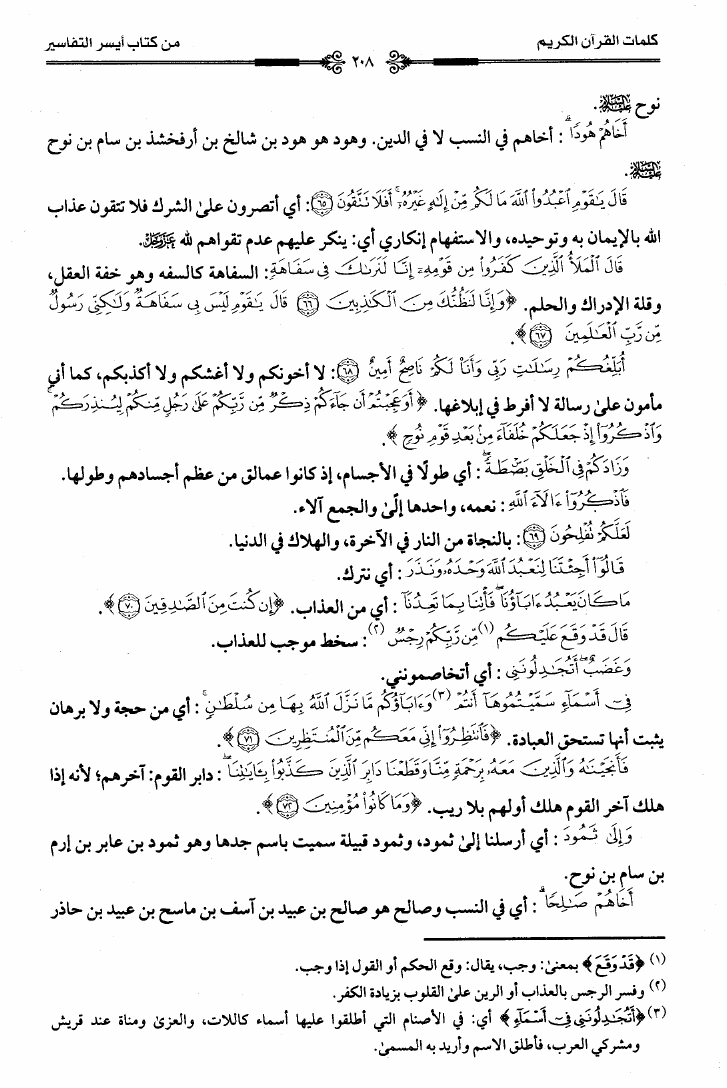 كلمات القرآن الكريم
٢٠٨
من كتاب أيسر التفاسير
نوح عليه السلام.
أَخَاهُمْ هُودًا ۗ : أخاهم في النسب لا في الدين. وهود هو هود بن شالخ بن أرفخشذ بن سام بن نوح
عليه السلام.
قَالَ يَٰقَوْمِ ٱعْبُدُوا۟ ٱللَّهَ مَا لَكُم مِّنْ إِلَٰهٍ غَيْرُهُۥٓ ۚ أَفَلَا تَتَّقُونَ ﴿٦٥﴾: أي أتصرون علىٰ الشرك فلا تتقون عذاب
الله بالإيمان به وتوحيده، والاستفهام إنكاري أي: ينكر عليهم عدم تقواهم لله عز وجل.
قَالَ ٱلْمَلَأُ ٱلَّذِينَ كَفَرُوا۟ مِن قَوْمِهِۦٓ إِنَّا لَنَرَىٰكَ فِى سَفَاهَةٍ: السفاهة كالسفه وهو خفة العقل،
وقلة الإدراك والحلم. ﴿وَإِنَّا لَنَظُنُّكَ مِنَ ٱلْكَٰذِبِينَ ﴿٦٦﴾ قَالَ يَٰقَوْمِ لَيْسَ بِى سَفَاهَةٌ وَلَٰكِنِّى رَسُولٌ
مِّن رَّبِّ ٱلْعَٰلَمِينَ ﴿٦٧﴾﴾.
أُبَلِّغُكُمْ رِسَٰلَٰتِ رَبِّى وَأَنَا۠ لَكُمْ نَاصِحٌ أَمِينٌ ﴿٦٨﴾: لا أخونكم ولا أغشكم ولا أكذبكم، كما أني
مأمون علىٰ رسالة لا أفرط في إبلاغها. ﴿أَوَعَجِبْتُمْ أَن جَآءَكُمْ ذِكْرٌ مِّن رَّبِّكُمْ عَلَىٰ رَجُلٍ مِّنكُمْ لِيُنذِرَكُمْ ۚ
وَٱذْكُرُوٓا۟ إِذْ جَعَلَكُمْ خُلَفَآءَ مِنۢ بَعْدِ قَوْمِ نُوحٍ﴾.
وَزَادَكُمْ فِى ٱلْخَلْقِ بَصْۜطَةً ۖ : أي طولًا في الأجسام، إذ كانوا عمالق من عظم أجسادهم وطولها.
فَٱذْكُرُوٓا۟ ءَالَآءَ ٱللَّهِ : نعمه، واحدها إلًىٰ والجمع آلاء.
لَعَلَّكُمْ تُفْلِحُونَ ﴿٦٩﴾: بالنجاة من النار في الآخرة، والهلاك في الدنيا.
قَالُوٓا۟ أَجِئْتَنَا لِنَعْبُدَ ٱللَّهَ وَحْدَهُۥ وَنَذَرَ : أي نترك.
مَا كَانَ يَعْبُدُ ءَابَآؤُنَا ۖ فَأْتِنَا بِمَا تَعِدُنَآ : أي من العذاب. ﴿إِن كُنتَ مِنَ ٱلصَّٰدِقِينَ ﴿٧٠﴾﴾.
قَالَ قَدْ وَقَعَ عَلَيْكُم (١) مِّن رَّبِّكُمْ رِجْسٌ (٢): سخط موجب للعذاب.
وَغَضَبٌ ۖ أَتُجَٰدِلُونَنِى : أي أتخاصمونني.
فِىٓ أَسْمَآءٍ سَمَّيْتُمُوهَآ أَنتُمْ (٣) وَءَابَآؤُكُم مَّا نَزَّلَ ٱللَّهُ بِهَا مِن سُلْطَٰنٍ ۚ : أي من حجة ولا برهان
يثبت أنها تستحق العبادة. ﴿فَٱنتَظِرُوٓا۟ إِنِّى مَعَكُم مِّنَ ٱلْمُنتَظِرِينَ ﴿٧١﴾﴾.
فَأَنجَيْنَٰهُ وَٱلَّذِينَ مَعَهُۥ بِرَحْمَةٍ مِّنَّا وَقَطَعْنَا دَابِرَ ٱلَّذِينَ كَذَّبُوا۟ بِـَٔايَٰتِنَا ۖ : دابر القوم: آخرهم؛ لأنه إذا
هلك آخر القوم هلك أولهم بلا ريب. ﴿وَمَا كَانُوا۟ مُؤْمِنِينَ ﴿٧٢﴾﴾.
وَإِلَىٰ ثَمُودَ : أي أرسلنا إلىٰ ثمود، وثمود قبيلة سميت باسم جدها وهو ثمود بن عابر بن إرم
بن سام بن نوح.
أَخَاهُمْ صَٰلِحًا ۗ : أي في النسب وصالح هو صالح بن عبيد بن آسف بن ماسح بن عبيد بن حاذر
(١) ﴿قَدْ وَقَعَ﴾ بمعنىٰ: وجب، يقال: وقع الحكم أو القول إذا وجب.
(٢) وفسر الرجس بالعذاب أو الرين علىٰ القلوب بزيادة الكفر.
(٣) ﴿أَتُجَٰدِلُونَنِى فِىٓ أَسْمَآءٍ﴾ أي: في الأصنام التي أطلقوا عليها أسماء كاللات، والعزىٰ ومناة عند قريش
ومشركي العرب، فأطلق الاسم وأريد به المسمىٰ.